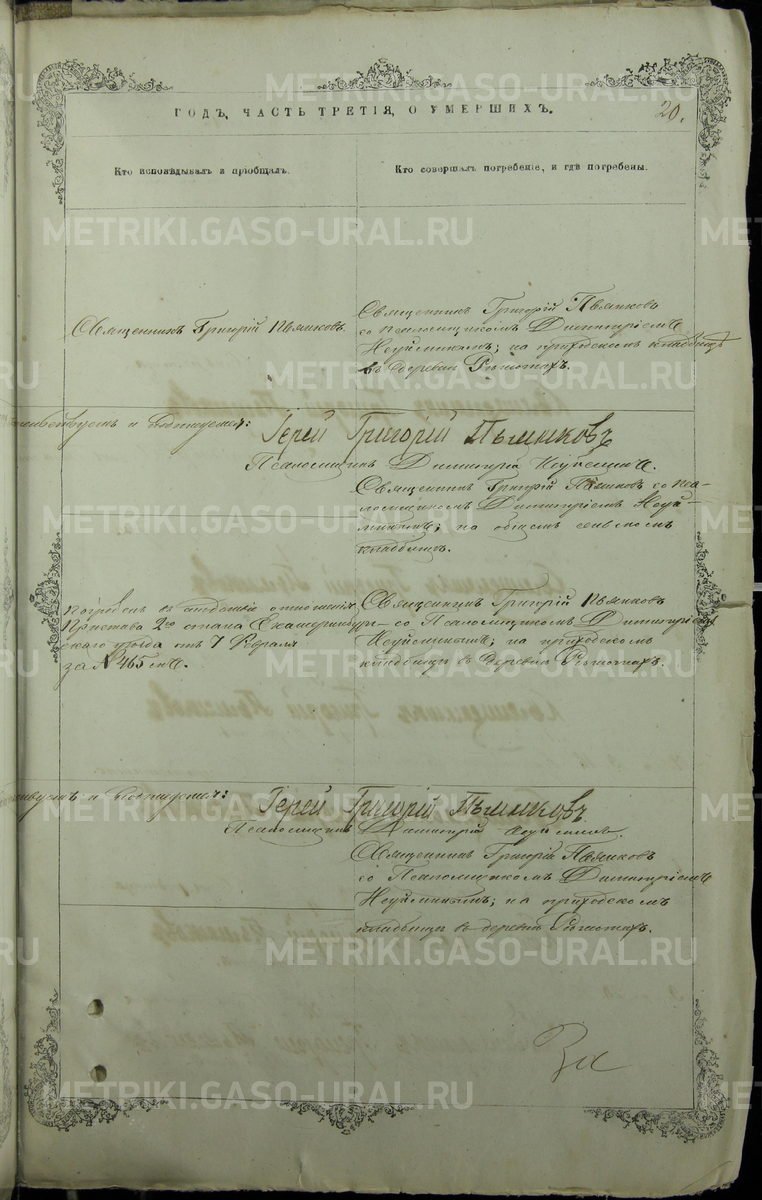 ГОДЪ, ЧАСТЬ ТРЕТІЯ, О УМЕРШИХЪ.
20.
Кто исповѣдывалъ и пріобщалъ.
Кто совершалъ погребеніе, и гдѣ погребены.
Священникъ Григорій Пьянковъ.
Священникъ Григорій Пьянковъ
со псаломщикомъ Димитріемъ
Неуйминымъ; на приходскомъ кладбищѣ
въ деревни
Іерей Григорій Пьянковъ
Псаломщикъ Димитрій Неуйминъ.
Священникъ Григорій Пьянковъ со пса-
ломщикомъ Димитріемъ Неуй-
минымъ; на общемъ сельскомъ
кладбищѣ.
Погребенъ отношенія
Пристава 2го стана Екатеринбург-
скаго уѣзда отъ 7 Февраля
за № 465
Священникъ Григорій Пьянковъ
со Псаломщикомъ Димитріемъ
Неуйминымъ; на приходскомъ
кладбищѣ въ деревни
Іерей Григорій Пьянковъ.
Псаломщикъ Димитрій Неуйминъ.
Священникъ Григорій Пьянковъ
со Псаломщикомъ Димитріемъ
Неуйминымъ; на приходскомъ
кладбищѣ въ деревни
METRIKI.GASO-URAL.RU
METRIKI.GASO-URAL.RU
METRIKI.GASO-URAL.RU
METRIKI.GASO-URAL.RU
METRIKI.GASO-URAL.RU
METRIKI.GASO-URAL.RU
METRIKI.GASO-URAL.RU
METRIKI.GASO-URAL.RU